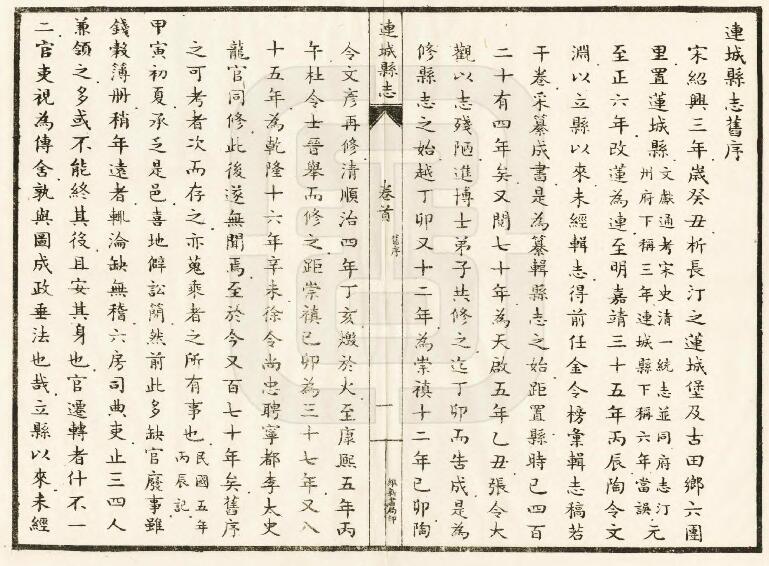 連城縣志舊序
宋紹興三年歲癸丑析長汀之蓮城堡及古田鄉六團
里置蓮城縣文獻通考宋史清一統志並同府志汀州府下稱三年連城縣下稱六年當誤元
至正六年改蓮為連至明嘉靖三十五年丙辰陶令文
淵以立縣以來未經輯志得前任金令榜彙輯志稿若
干卷采纂成書是為纂輯縣志之始距置縣時已四百
二十有四年矣又閱七十年為天啟五年乙丑張令大
觀以志殘陋進博士弟子共修之迄丁卯而告成是為
修縣志之始越丁卯又十二年為崇禎十二年己卯陶
連城縣志
卷首
舊序
一
維新書局印
令文彥再修清順治四年丁亥燬於火至康熙五年丙
午杜令士晉舉而修之距崇禎己卯為三十七年又八
十五年為乾隆十六年辛未徐令尚忠聘寧都李太史
龍官同修此後遂無聞焉至於今又百七十年矣舊序
之可考者次而存之亦蒐乘者之所有事也民國五年丙辰記
甲寅初夏承乏是邑喜地僻訟簡然前此多缺官廢事雖
錢穀簿册稍年遠者輒淪缺無稽六房司典吏止三四人
兼領之多或不能終其役且安其身也官遷轉者什不一
二官吏視為傳舍孰與圖成政垂法也哉立縣以來未經